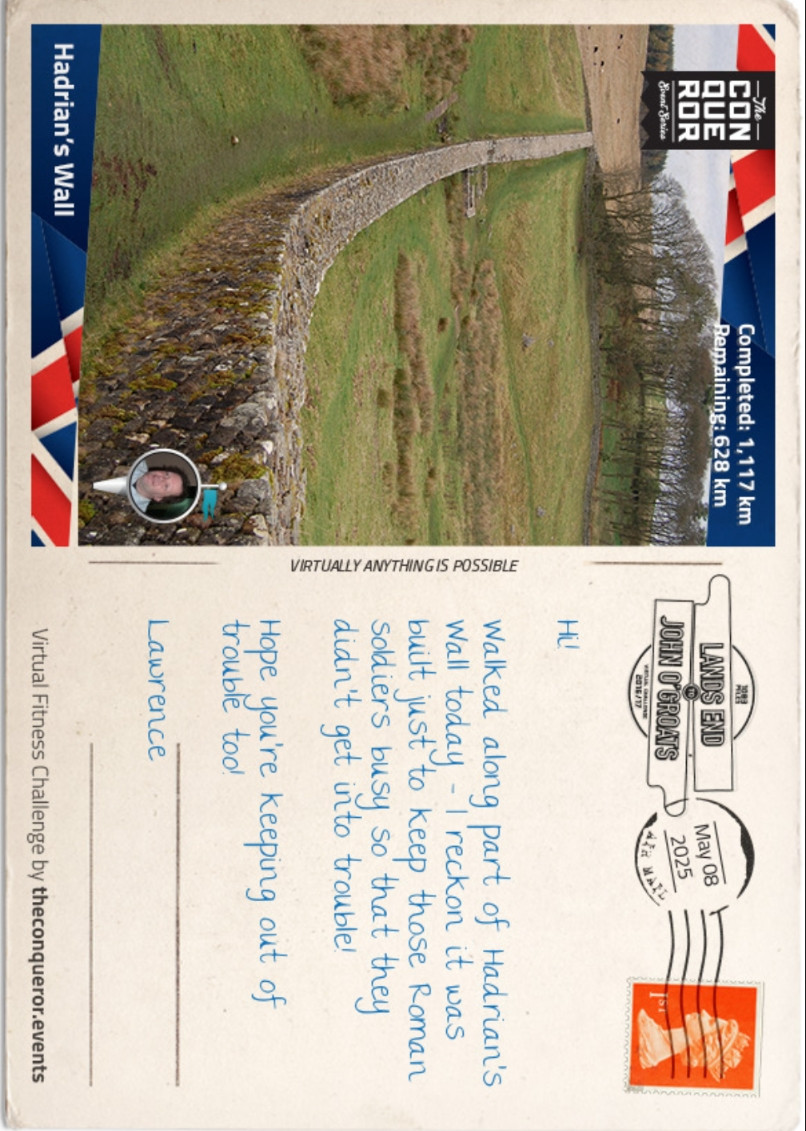 The
CON
QUE
ROR
Event Series
Completed: 1,117 km
Remaining: 628 km
Hadrian's Wall
VIRTUALLY ANYTHING IS POSSIBLE
1083
MILES
LANDS END
TO
JOHN O'GROATS
VIRTUAL CHALLENGE
2016/17
May 08
2025
AIR MAIL
1ST
Hi!
Walked along part of Hadrian's
Wall today - I reckon it was
built just to keep those Roman
soldiers busy so that they
didn't get into trouble!
Hope you're keeping out of
trouble too!
Lawrence
Virtual Fitness Challenge by theconqueror.events